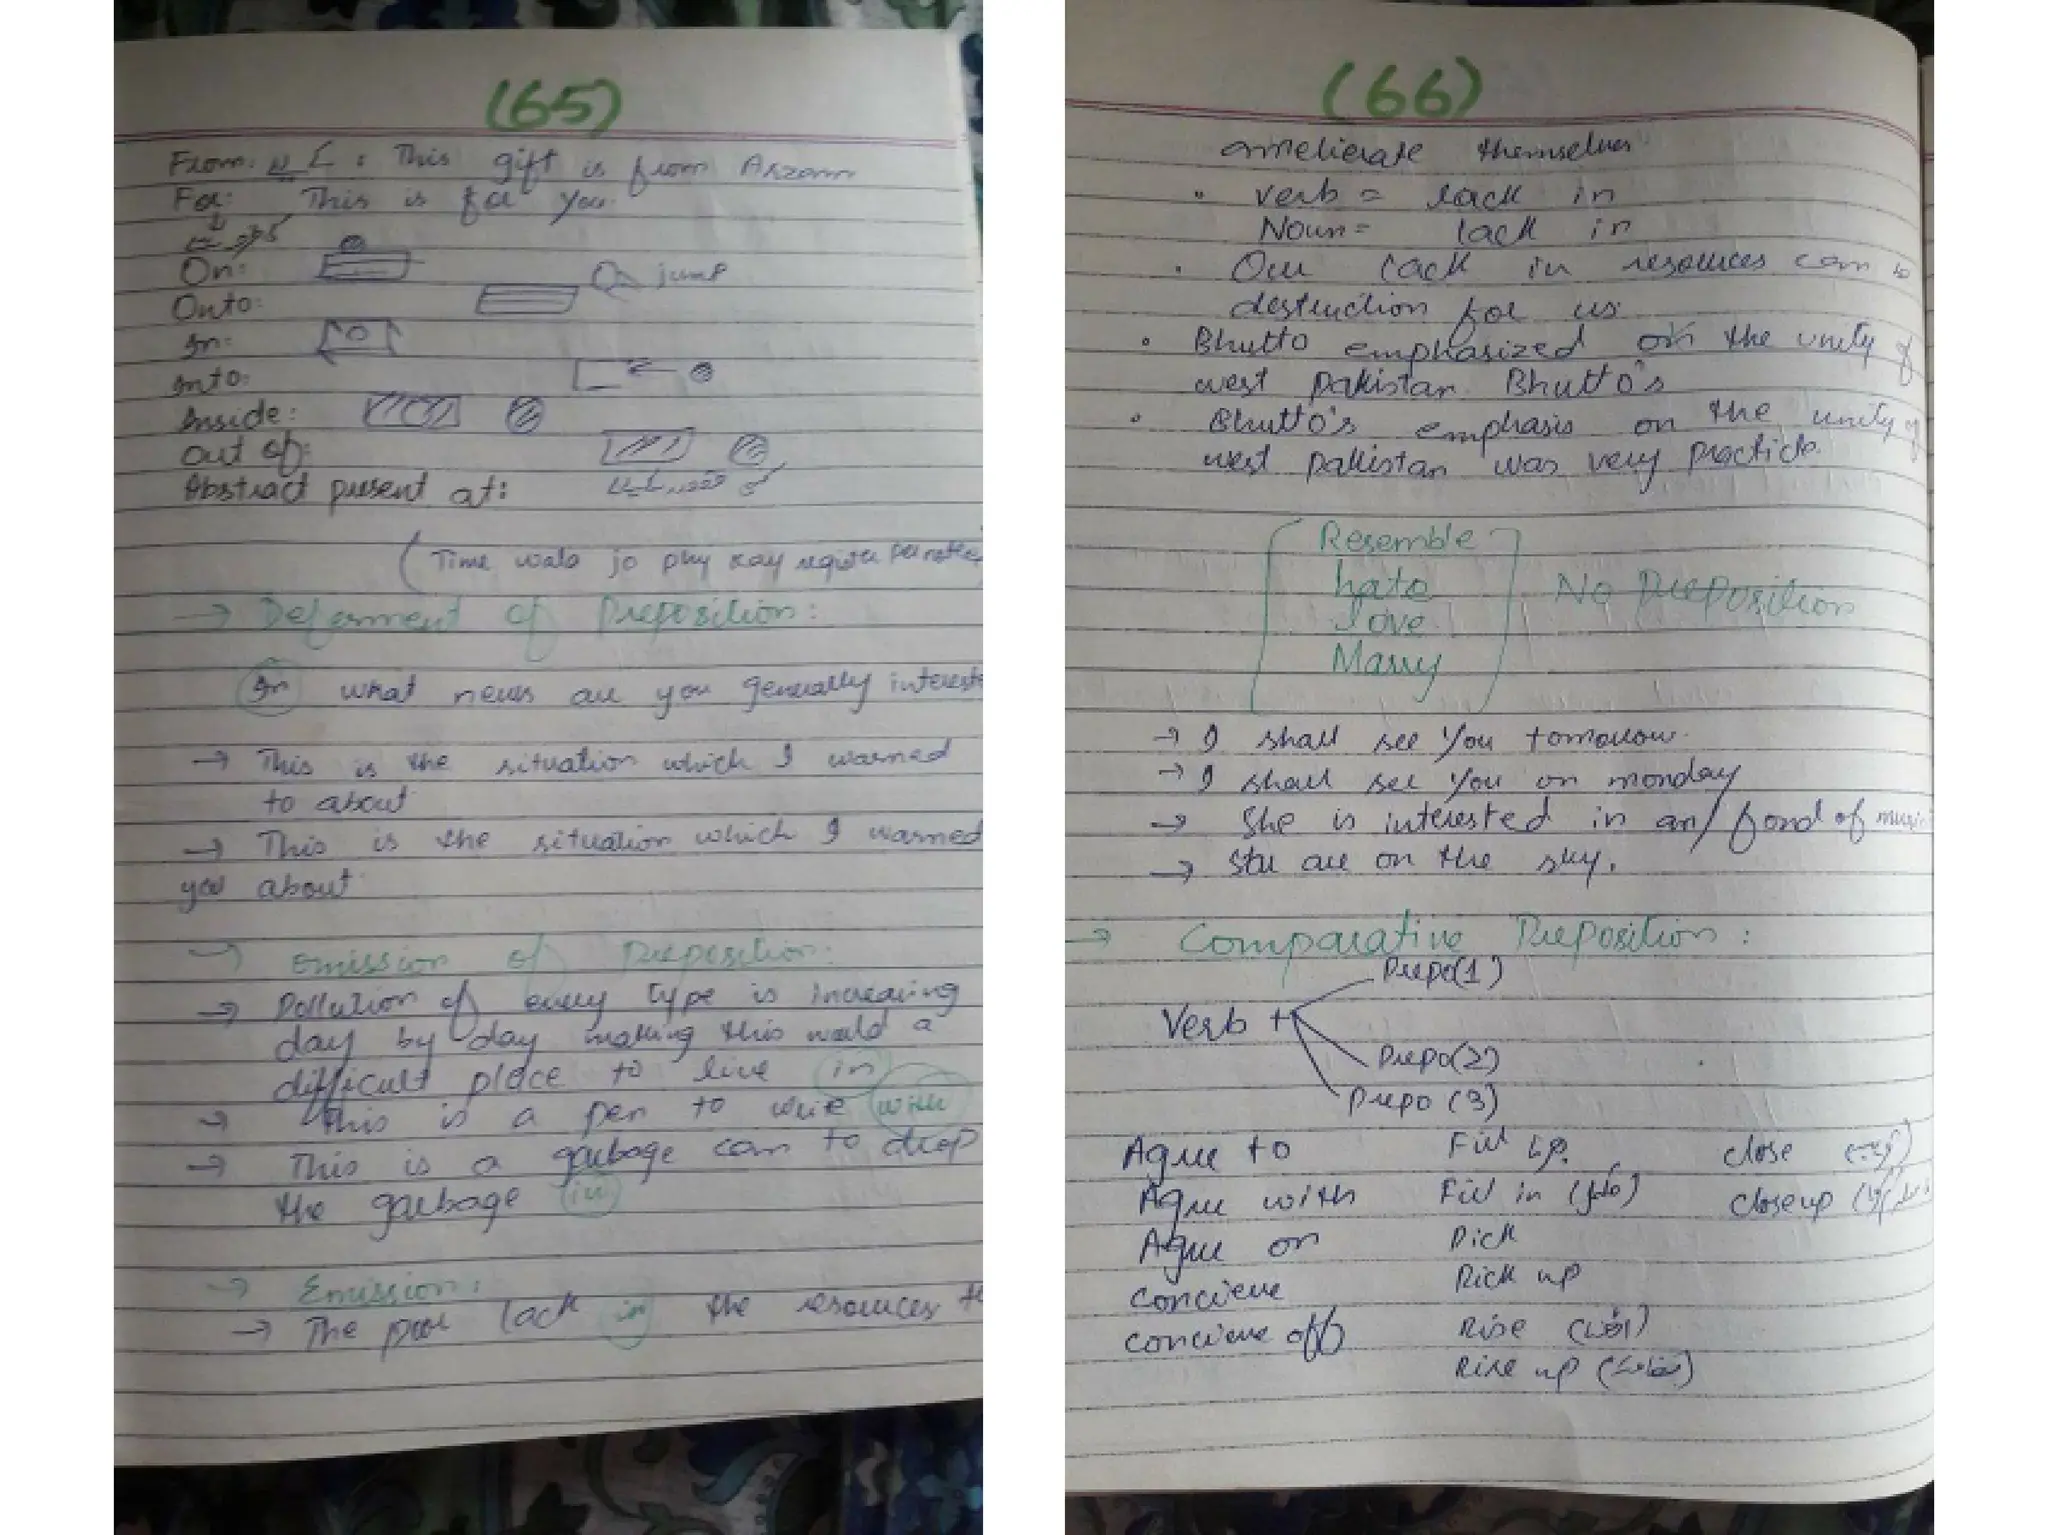 (65)
From: : This gift is from Arzam
For: This is for you.
On:
Onto: jump
In:
Into:
Inside:
Out of:
Abstract present at:
(Time wala jo phy kay
→ Deferment of Preposition:
In what news are you generally interest
→ This is the situation which I warned
to about
→ This is the situation which I warned
you about
→ Omission of Preposition:
→ Pollution of every type is increasing
day by day making this world a
difficult place to live in
→ This is a pen to write with
→ This is a garbage can to drop
the garbage in
→ Emission:
→ The poor lack in the resources to
(66)
ameliorate themselves
• Verb = lack in
Noun = lack in
• Our lack in resources can b
destruction for us.
• Bhutto emphasized on the unity of
west Pakistan. Bhutto's
• Bhutto's emphasis on the unity of
west Pakistan was very
Resemble
hate
love
Marry
No Preposition
→ I shall see you tomorrow.
→ I shall see you on monday
→ She is interested in an/fond of music
→ are on the sky.
→ Comparative Preposition:
Prepo(1)
Verb +
Prepo(2)
Prepo (3)
Agree to Fill up. close
Agree with Fill in closeup
Agree on Pick
Concieve Pick up
Concieve off Rise
Rise up